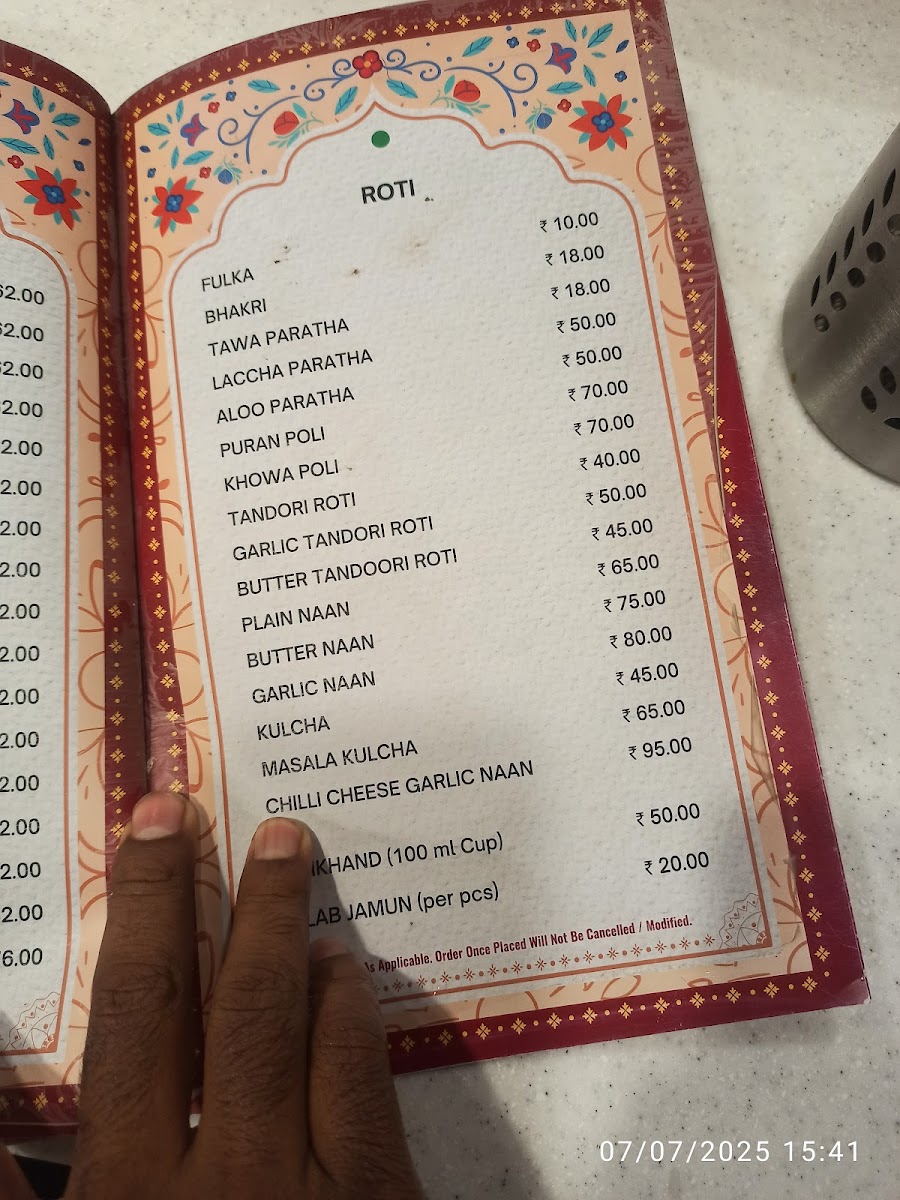 ROTI
FULKA ₹ 10.00
BHAKRI ₹ 18.00
TAWA PARATHA ₹ 18.00
LACCHA PARATHA ₹ 50.00
ALOO PARATHA ₹ 50.00
PURAN POLI ₹ 70.00
KHOWA POLI ₹ 70.00
TANDORI ROTI ₹ 40.00
GARLIC TANDORI ROTI ₹ 50.00
BUTTER TANDOORI ROTI ₹ 45.00
PLAIN NAAN ₹ 65.00
BUTTER NAAN ₹ 75.00
GARLIC NAAN ₹ 80.00
KULCHA ₹ 45.00
MASALA KULCHA ₹ 65.00
CHILLI CHEESE GARLIC NAAN ₹ 95.00
(100 ml Cup) ₹ 50.00
JAMUN (per pcs) ₹ 20.00
As Applicable. Order Once Placed Will Not Be Cancelled / Modified.
07/07/2025 15:41